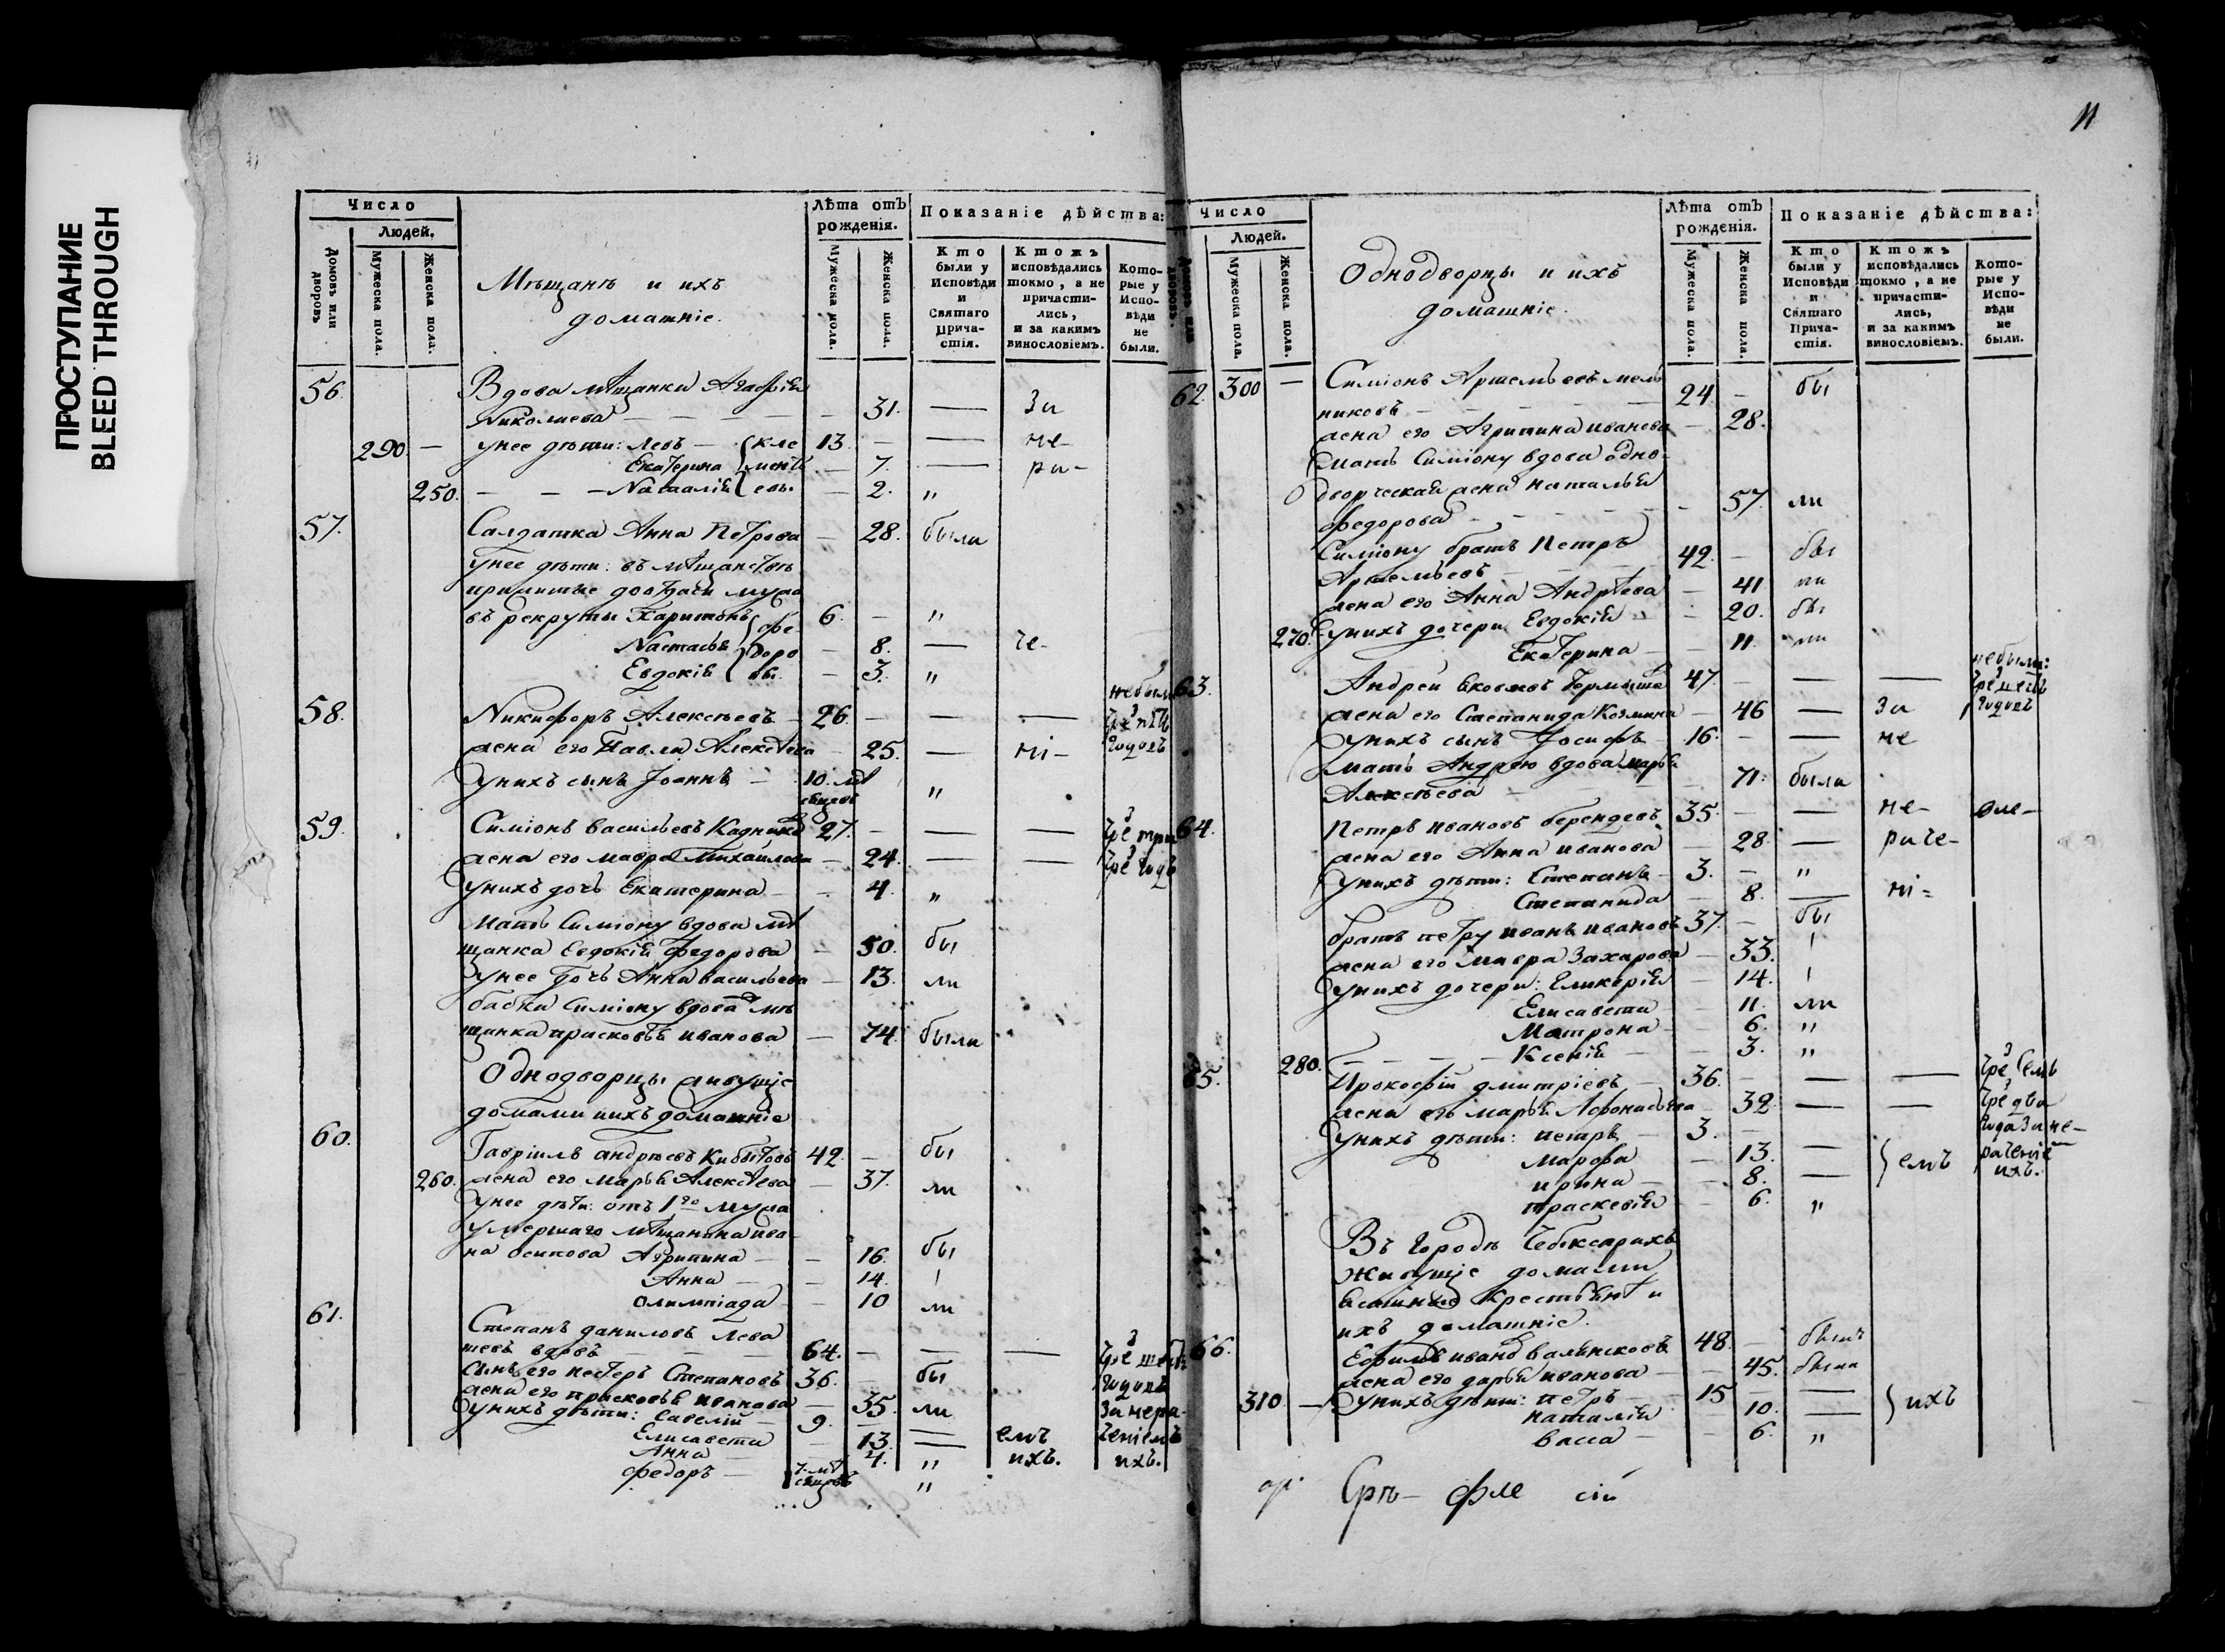 ПРОСТУПАНИЕ
BLEED THROUGH
Число
Людей.
Домовъ или дворовъ
Мужеска пола.
Женска пола.
Мѣщанъ и ихъ
домашніе.
Лѣта отъ рожденія.
Мужеска пола.
Женска пола.
Показаніе дѣйства:
Кто были у Исповѣди и Святаго Прича- стія.
Ктожъ исповѣдались токмо, а не причасти- лись, и за какимъ винословіемъ.
Кото- рые у Испо- вѣди не были.
56. Вдова мѣщанка Агафія
Николаева — 31. — За
290. — У нее дѣти: Левъ — Кле 13. — — не-
Екатерина мен — 7. — ра-
250. — — — Наталія евы — 2. "
57. Салдатка Анна Петрова — 28. были
У нее дѣти: въ мѣщанствѣ
прижитые до отдачи мужа
въ рекруты Харитонъ Фе- 6. — "
Настасья доро — 8. — че-
Евдокія вы — 3. "
58. Никифоръ Алексѣевъ — 26. — — — не были
чрез пять
жена его Павла Алексѣева — 25. — ні- годовъ
У нихъ сынъ Іоаннъ — 10. мѣ
сяцовъ "
59. Симіонъ Васильевъ 27. — — — чрез три
жена его Мавра Михайлова — 24. — — чрез годъ
У нихъ дочь Екатерина — 4. "
Мать Симіону вдова мѣ
щанка Евдокія Федорова — 50. бы
У нее дочь Анна Васильева — 13. ли
бабка Симіону вдова мѣ
щанка Прасковья Иванова — 74. были
Однодворцы живущіе
домами и ихъ домашніе
60. Гавріилъ Андреевъ 42. — бы
260. жена его Марья Алексѣева — 37. ли
У нее дѣти: отъ 1го мужа
умершаго мѣщанина Ива
на Осипова Агрипина — — 16. бы
Анна — — 14. !
Олимпіада — 10 ли
61. Степанъ Даниловъ Лева
шевъ вдовъ — 64. — — — чрез шесть
Сынъ его Нестеръ Степановъ 36. — бы годовъ
жена его Прасковья Иванова — 35. ли За нера-
У нихъ дѣти: Савелій — 9. — — ченіемъ
Елисавета — 13. — емъ ихъ.
Анна — 4. " ихъ.
Федоръ — 7. мѣ
сяцовъ "
11
Число
Людей.
Домовъ или дворовъ.
Мужеска пола.
Женска пола.
Однодворцы и ихъ
домашніе.
Лѣта отъ рожденія.
Мужеска пола.
Женска пола.
Показаніе дѣйства:
Кто были у Исповѣди и Святаго Прича- стія.
Ктожъ исповѣдались токмо, а не причасти- лись, и за какимъ винословіемъ.
Кото- рые у Испо- вѣди не были.
62. 300 — Симіонъ Артемьевъ Мель
никовъ — 24. — бы
жена его Агрипина Иванова — 28.
Мать Симіону вдова одно-
дворческая жена Наталья
Федорова — 57. ли
Симіону братъ Петръ
Артемьевъ — 42. — бы
жена его Анна Андрѣева — 41 ли
270. У нихъ дочери Евдокія — 20. бы
Екатерина — — 11. ли
не были:
63. Андрей 47. — — — чрез шесть
жена его Степанида Козмина — 46 — За годовъ
У нихъ сынъ Іосифъ — 16. — — не
Мать Андрею вдова Марья
Алексѣева — 71. были
64. Петръ Ивановъ Берендеевъ 35. — — не-
жена его Анна Иванова — 28. — раче-
У нихъ дѣти: Степанъ — 3. — "
Степанида — 8. — ні=
братъ Петру Иванъ Ивановъ 37. — бы
жена его Мавра Захарова — 33. !
У нихъ дочери: Гликерія — 14. !
Елисавета — 11. ли
Матрона — 6. "
280. — — — — Ксенія — 3. "
65. Прокофій Дмитріевъ — 36. — — — чрез семь
жена его Марья Афонасьева — 32. — — чрез два
У нихъ дѣти: Петръ — 3. — года За не-
Марфа — 13. — емъ раченіе
Ирина — 8. — ихъ.
Праскевія — 6. "
Въ городѣ Чебоксарахъ
Живущіе домами
Крестьяне и
ихъ домашніе.
66. Ефимъ Ивановъ 48. — были
жена его Дарья Иванова — 45. были
310. — У нихъ дѣти: Петръ — 15 — —
Наталія — 10. — ихъ
Васса — 6. "